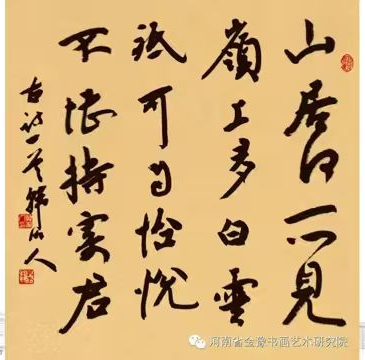 山居何所見
嶺上多白雲
祗可自怡悅
不堪持寄君
古詩一首
河南省金豫书画艺术研究院